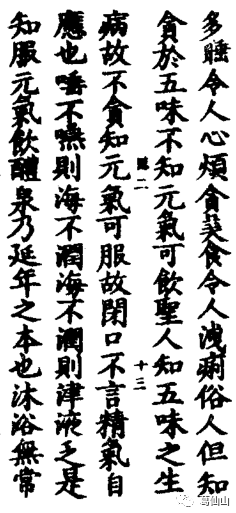 多睡令人心煩貪美食令人洩痢俗人但知
貪於五味不知元氣可飲聖人知五味之生
十三
病故不貪知元氣可服故閉口不言精氣自
應也唾不嚥則海不潤海不潤則津液乏是
知服元氣飲醴泉乃延年之本也沐浴無常
葛仙山